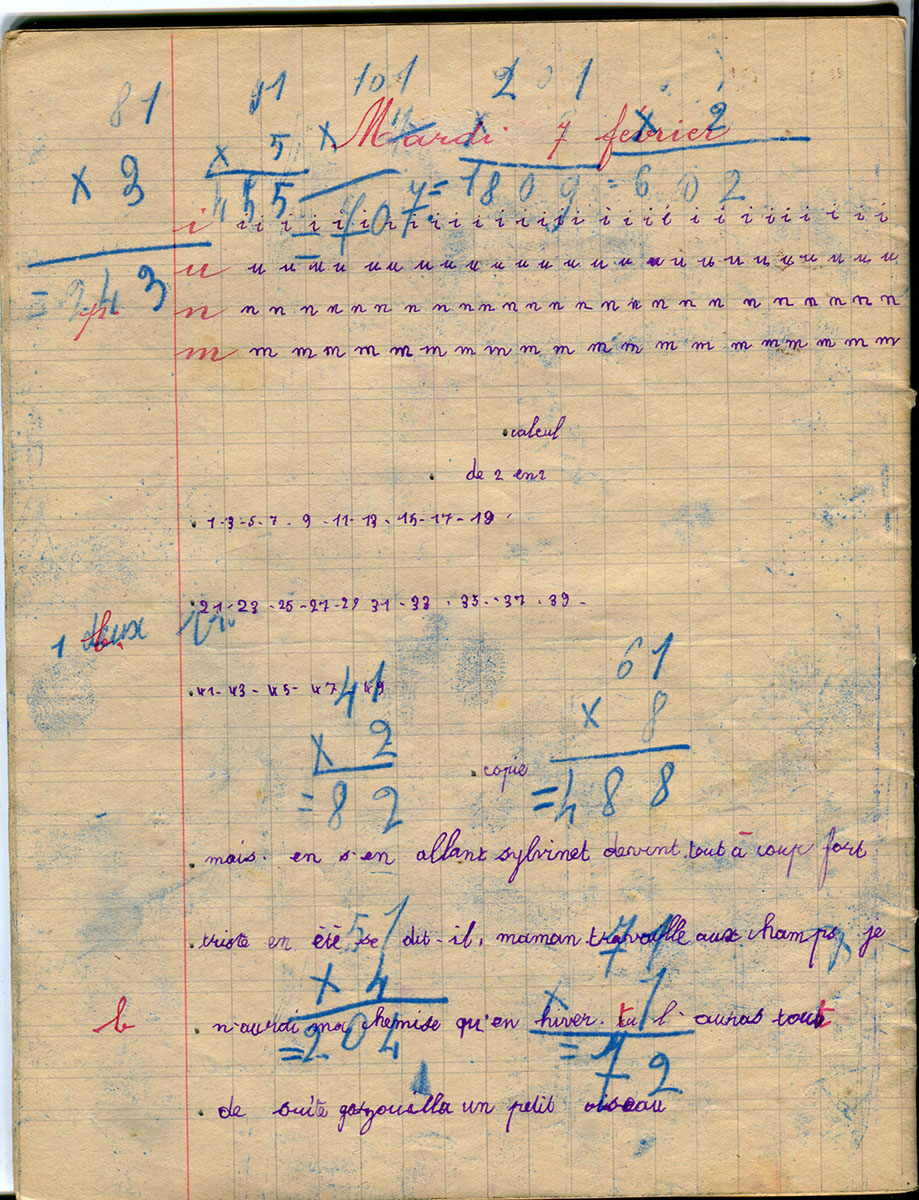 81 91 101 201
Mardi 7 février
× 3 × 5 × × 2
455 = 707 = 1809 = 602
= 243
i i i i i i i i i i i i i i i i i i i i i i i i i i i i i i
u u u u u u u u u u u u u u u u u u u u u u u u u u
p n n n n n n n n n n n n n n n n n n n n n n n n n n
m m m m m m m m m m m m m m m m m m m m m
calcul
de 2 en 2
1-3-5-7-9-11-13-15-17-19
21-23-25-27-29 31-33-35-37-39-
1 deux
41-43-45-47 49
41
× 2
= 82
61
× 8
= 488
copie
mais. en s'en allant sylvinet devint tout à coup fort
triste en été se dit-il, maman travaille aux champs, je
51
× 4
= 204
71
× 1
= 72
b n'aurai ma chemise qu'en hiver. tu l'auras tout
de suite gazouilla un petit oiseau